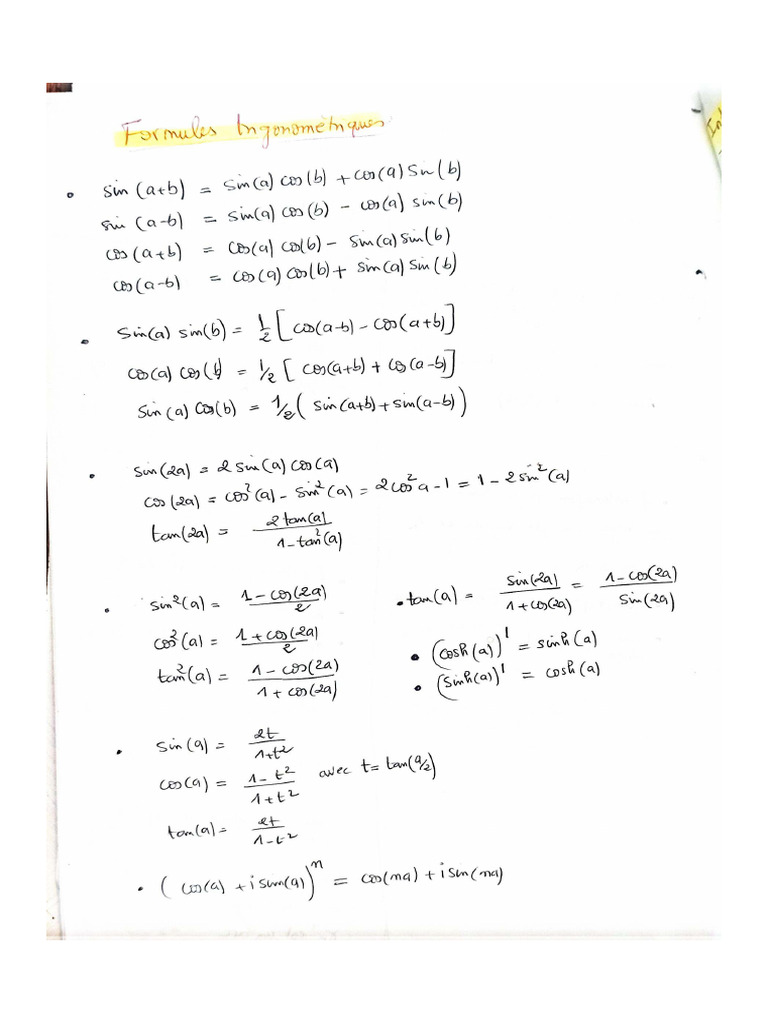 Formules trigonométriques
• sin(a+b) = sin(a) cos(b) + cos(a) sin(b)
sin(a-b) = sin(a) cos(b) - cos(a) sin(b)
cos(a+b) = cos(a) cos(b) - sin(a) sin(b)
cos(a-b) = cos(a) cos(b) + sin(a) sin(b)
• sin(a) sin(b) = 1/2 [cos(a-b) - cos(a+b)]
cos(a) cos(b) = 1/2 [cos(a+b) + cos(a-b)]
sin(a) cos(b) = 1/2 (sin(a+b) + sin(a-b))
• sin(2a) = 2 sin(a) cos(a)
cos(2a) = cos²(a) - sin²(a) = 2cos²a - 1 = 1 - 2sin²(a)
tan(2a) = 2tan(a) / 1-tan²(a)
• sin²(a) = 1-cos(2a) / 2
cos²(a) = 1+cos(2a) / 2
tan²(a) = 1-cos(2a) / 1+cos(2a)
• tan(a) = sin(2a) / 1+cos(2a) = 1-cos(2a) / sin(2a)
• (cosh(a))' = sinh(a)
• (sinh(a))' = cosh(a)
• sin(a) = 2t / 1+t²
cos(a) = 1-t² / 1+t² avec t = tan(a/2)
tan(a) = 2t / 1-t²
• (cos(a) + i sin(a))ⁿ = cos(na) + i sin(na)